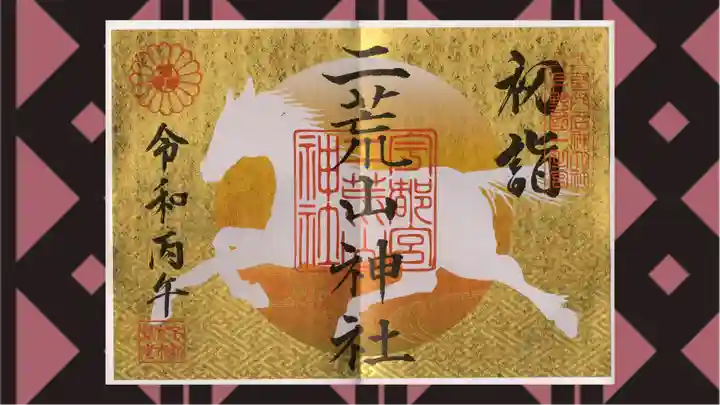 初詣
二荒山神社
令和丙午
宇都宮
二荒山
神社